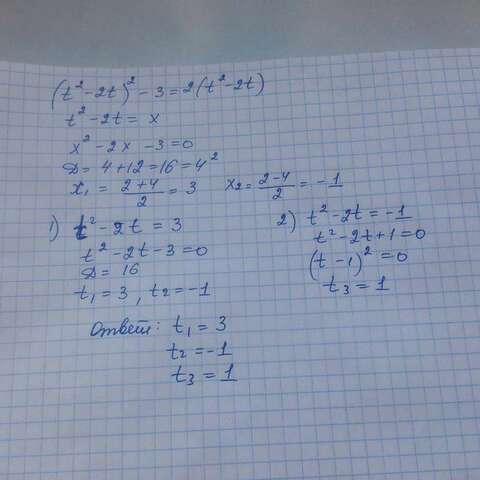 (t² - 2t)² - 3 = 2(t² - 2t)
t² - 2t = x
x² - 2x - 3 = 0
D = 4 + 12 = 16 = 4²
x₁ = (2+4)/2 = 3   x₂ = (2-4)/2 = -1
1) t² - 2t = 3
t² - 2t - 3 = 0
D = 16
t₁ = 3, t₂ = -1
2) t² - 2t = -1
t² - 2t + 1 = 0
(t - 1)² = 0
t₃ = 1
Ответ: t₁ = 3
t₂ = -1
t₃ = 1